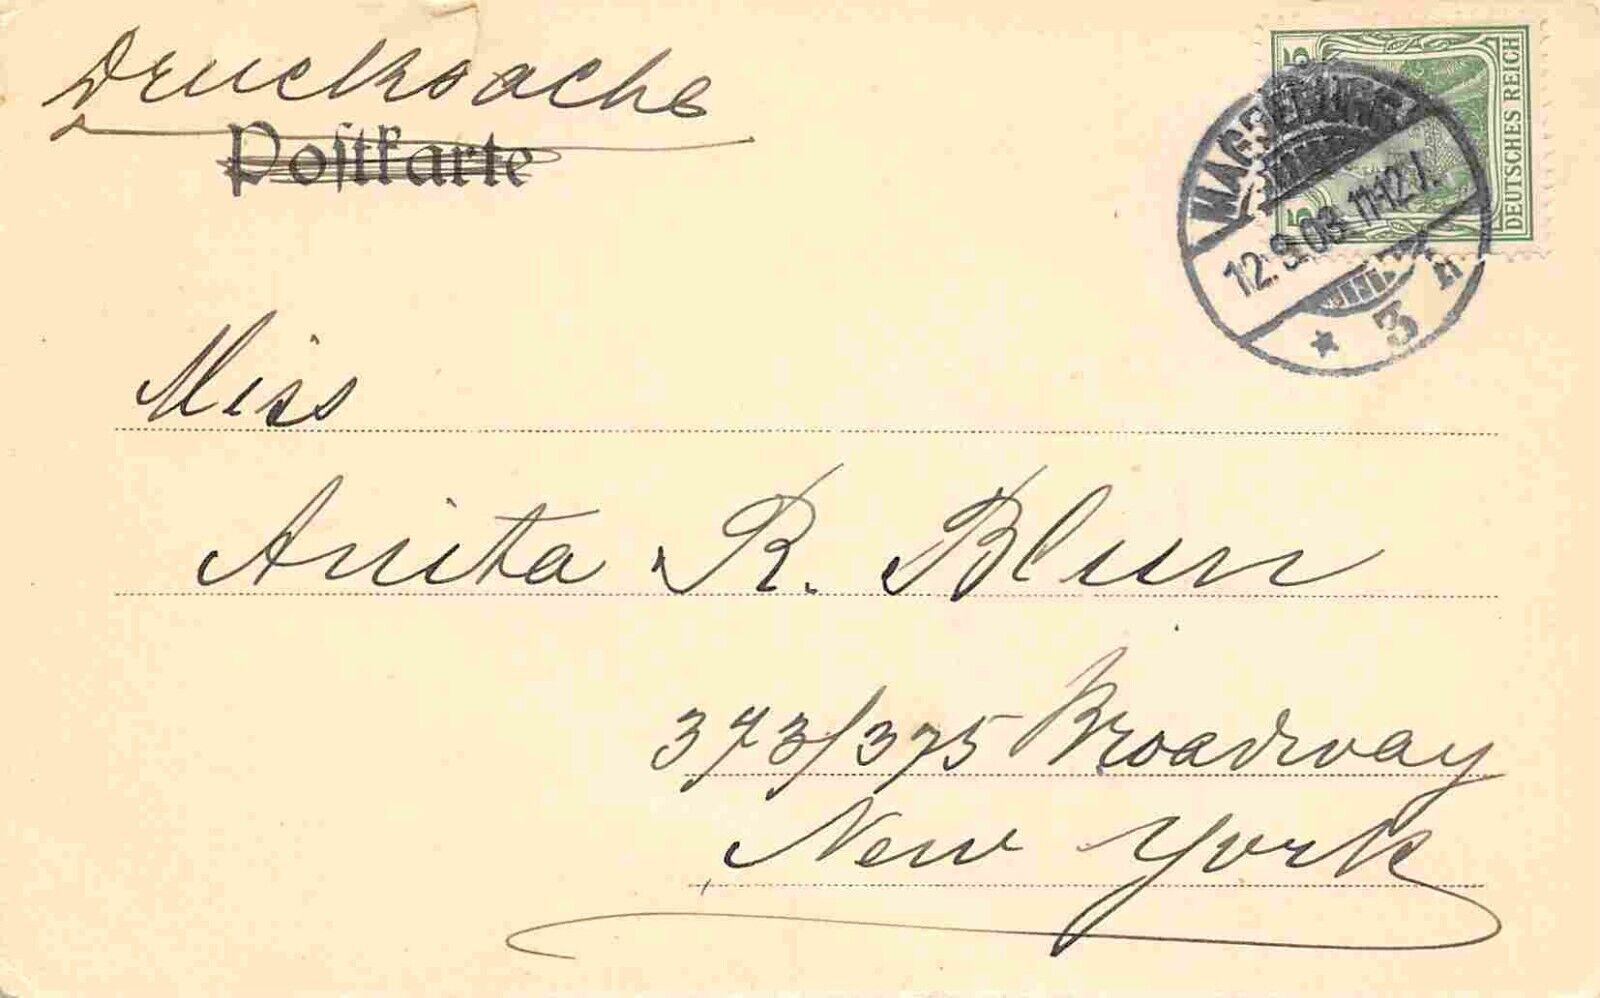 Drucksache
Postkarte
5 5
DEUTSCHES REICH
MAGDEBURG
12.9.03. 11-12 V.
* 3 n
Miss
Anita R. Blun
373/375 Broadway
New York